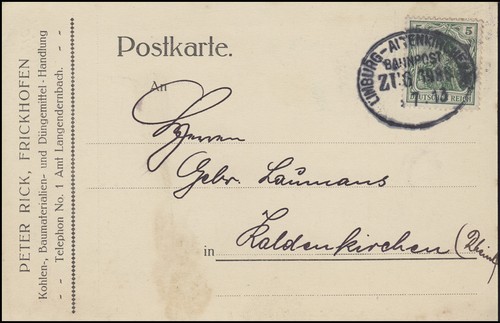 PETER RICK, FRICKHOFEN
Kohlen-, Baumaterialien- und Düngemittel-Handlung
- - Telephon No. 1 Amt Langendernbach. - -
Postkarte.
An
Herren
Gebr. Laumans
in Kaldenkirchen
5 5
DEUTSCHES REICH
LIMBURG-ALTENKIRCHEN
BAHNPOST
ZUG